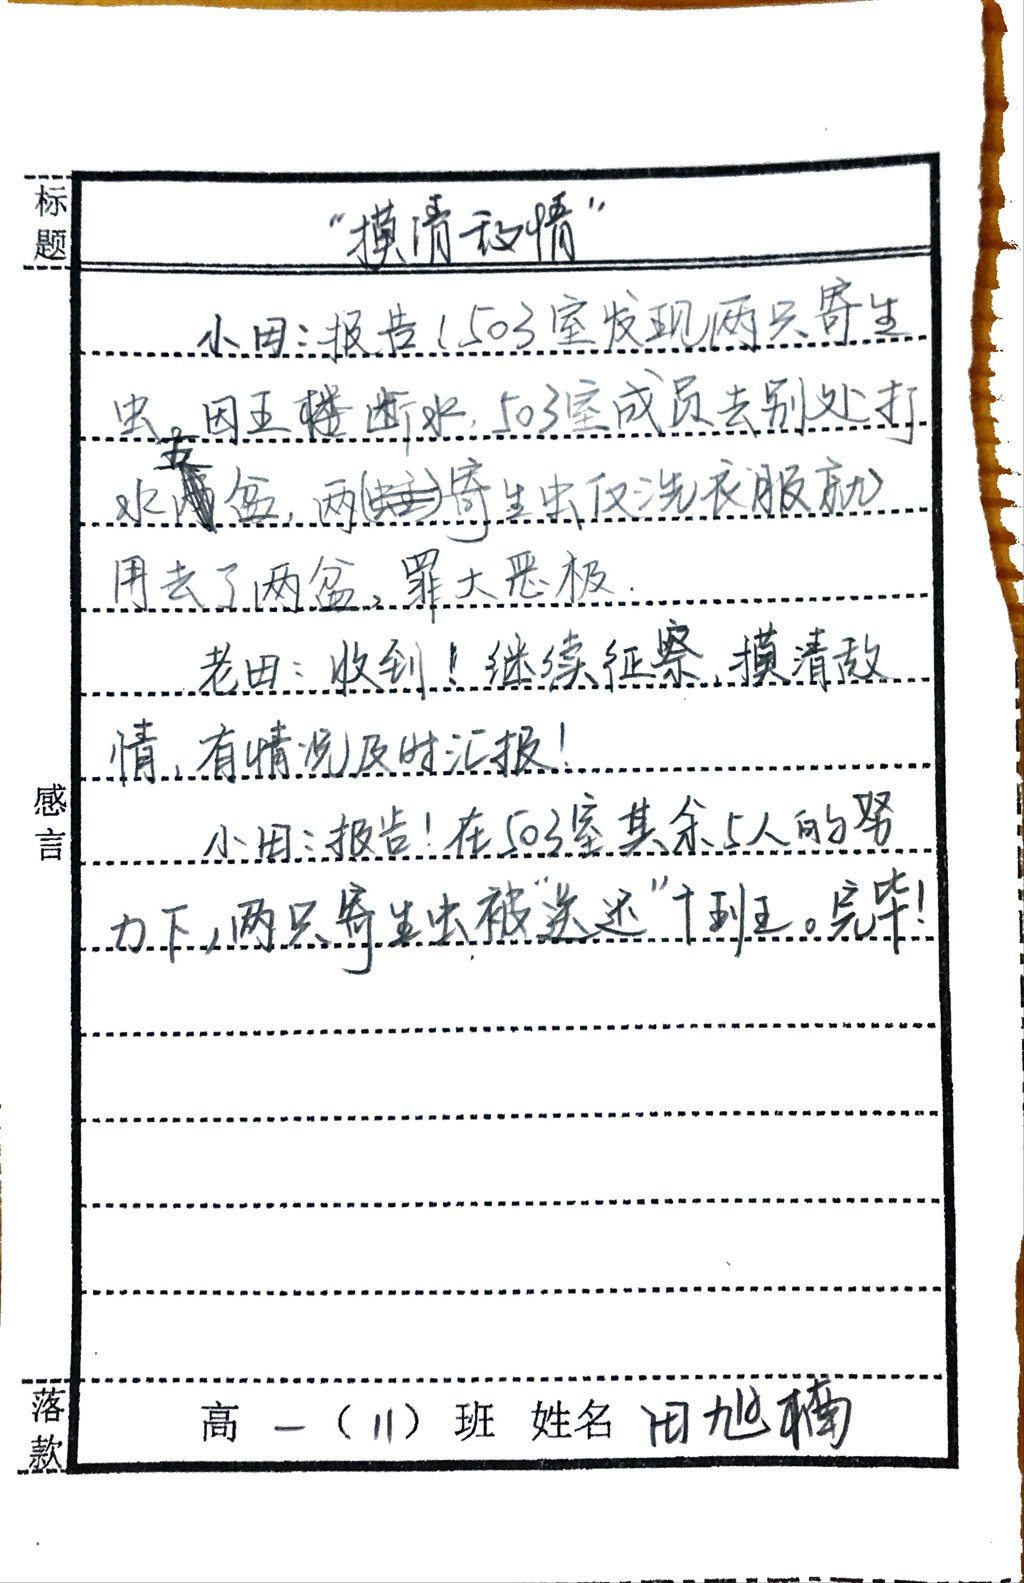 标题
"摸清敌情"
小田：报告！503室发现两只寄生
虫，因五楼断水，503室成员去别处打
水五盆，两寄生虫仅洗衣服就
用去了两盆，罪大恶极.
老田：收到！继续征察，摸清敌
情，有情况及时汇报！
小田：报告！在503室其余5人的努
力下，两只寄生虫被"送还"十班。完毕！
感言
落款
高一（11）班 姓名 田旭楠